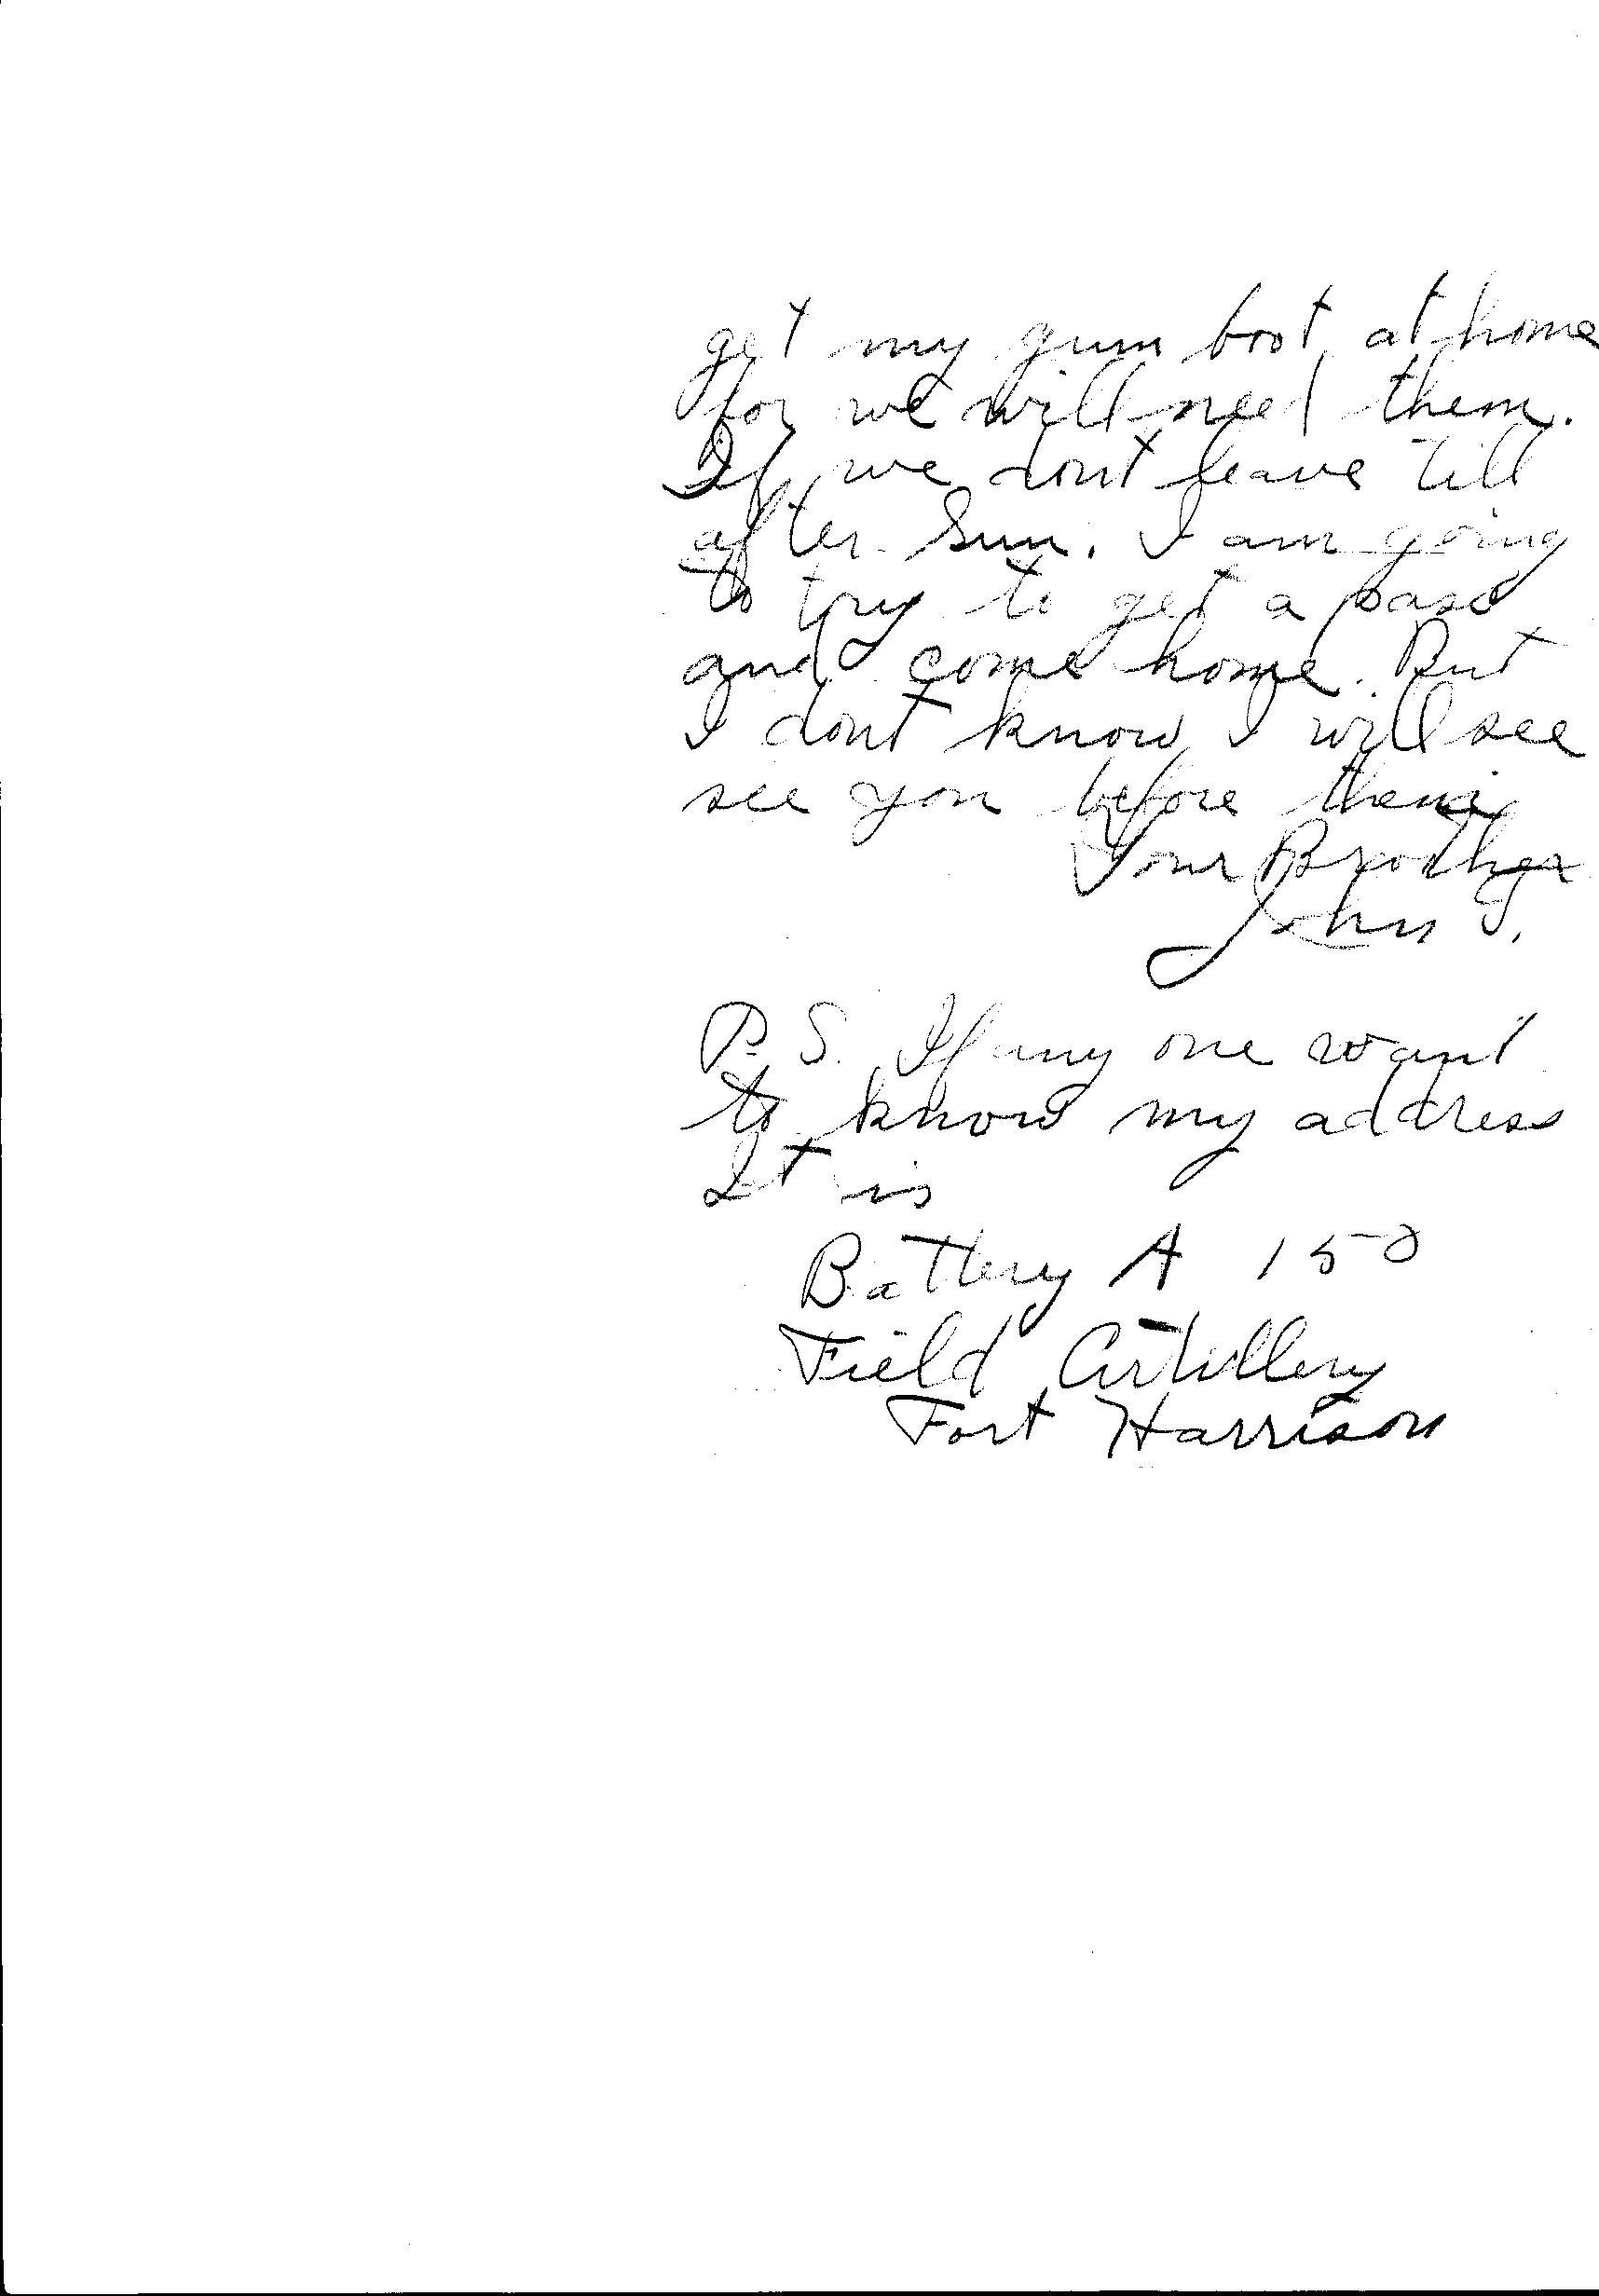 get my gum boot at home
for we will need them.
If we dont leave till
after Sun. I am going
to try to get a pass
and come home. But
I dont know I will see
see you before then
Your Brother
John J.
P.S. If any one want
to know my address
It is
Battery A 150
Field Artillery
Fort Harrison